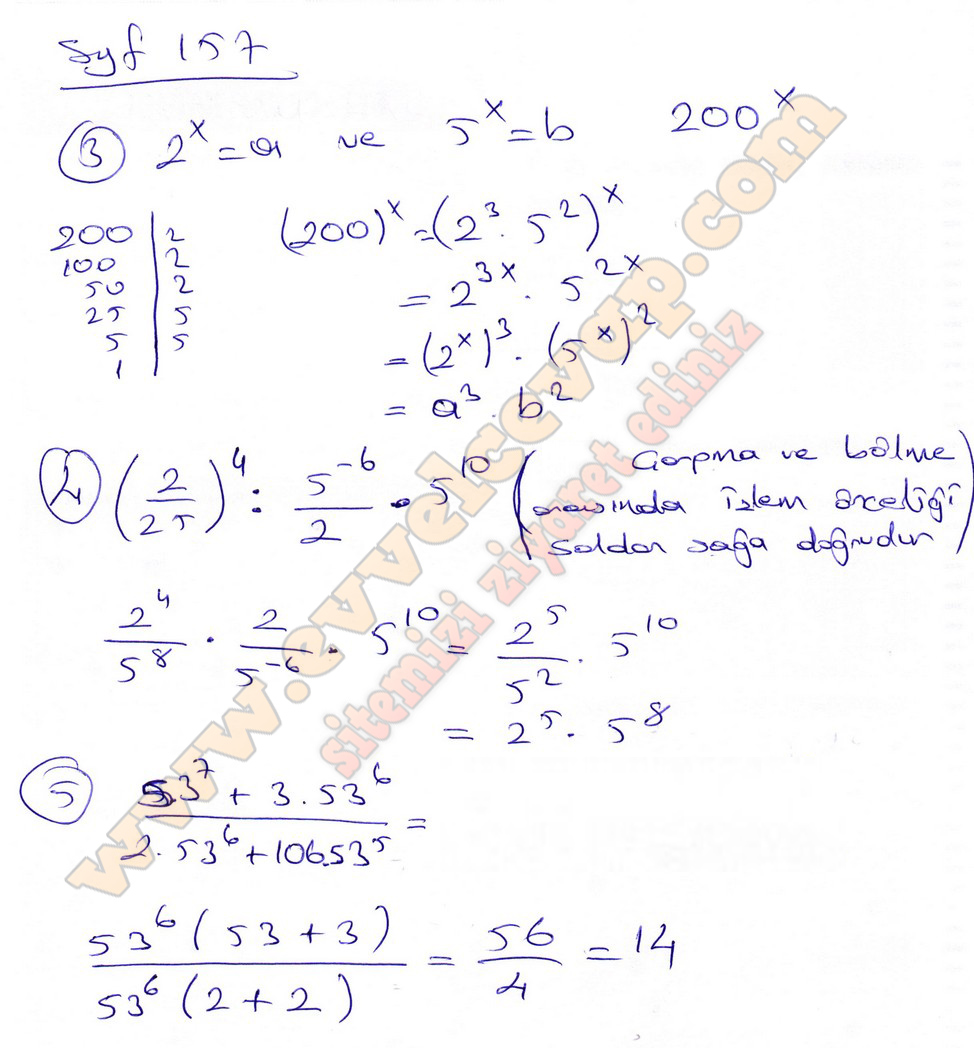 Syf 157
③ 2^x = a ve 5^x = b 200^x
200 | 2 (200)^x = (2^3 . 5^2)^x
100 | 2
50 | 2 = 2^3x . 5^2x
25 | 5
5 | 5 = (2^x)^3 . (5^x)^2
1 |
= a^3 . b^2
④ (2/25)^4 : 5^-6/2 . 5^10 (Çarpma ve bölme
arasında işlem önceliği
soldan sağa doğrudur)
2^4/5^8 . 2/5^-6 . 5^10 = 2^5/5^2 . 5^10
= 2^5 . 5^8
⑤ 53^7 + 3.53^6 / 2.53^6 + 106.53^5 =
53^6 (53 + 3) / 53^6 (2 + 2) = 56/4 = 14
www.evvelcevap.com
sitemizi ziyaret ediniz